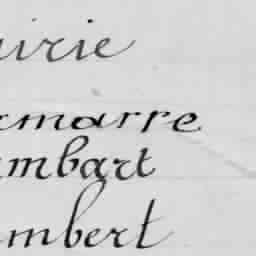 airie
amarre
ambart
ambert